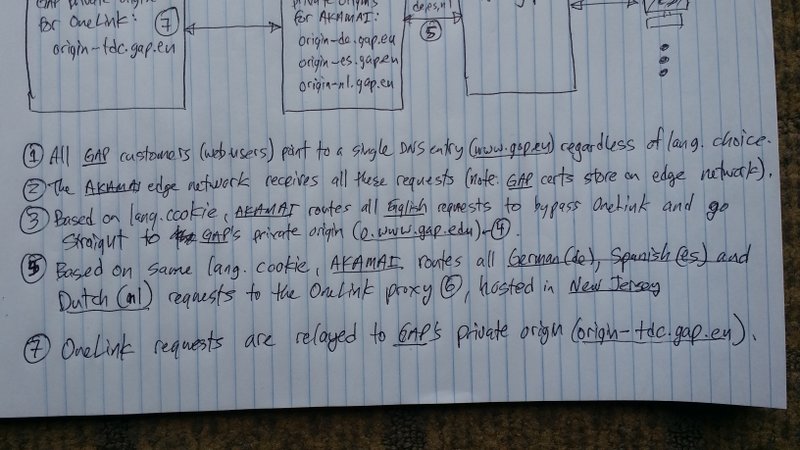 for OneLink: ⑦
origin-tdc.gap.eu
private origins
for AKAMAI:
origin-de.gap.eu
origin-es.gap.eu
origin-nl.gap.eu
de,es,nl
⑤
① All GAP customers (web users) point to a single DNS entry (www.gap.eu) regardless of lang. choice.
② The AKAMAI edge network receives all these requests (note: GAP certs store on edge network).
③ Based on lang. cookie, AKAMAI routes all English requests to bypass OneLink and go
straigut to GAP's private origin (o.www.gap.edu)-④.
⑤ Based on same lang. cookie, AKAMAI routes all German (de), Spanish (es) and
Dutch (nl) requests to the OneLink proxy ⑥, hosted in New Jersey
⑦ OneLink requests are relayed to GAP's private origin (origin-tdc.gap.eu).